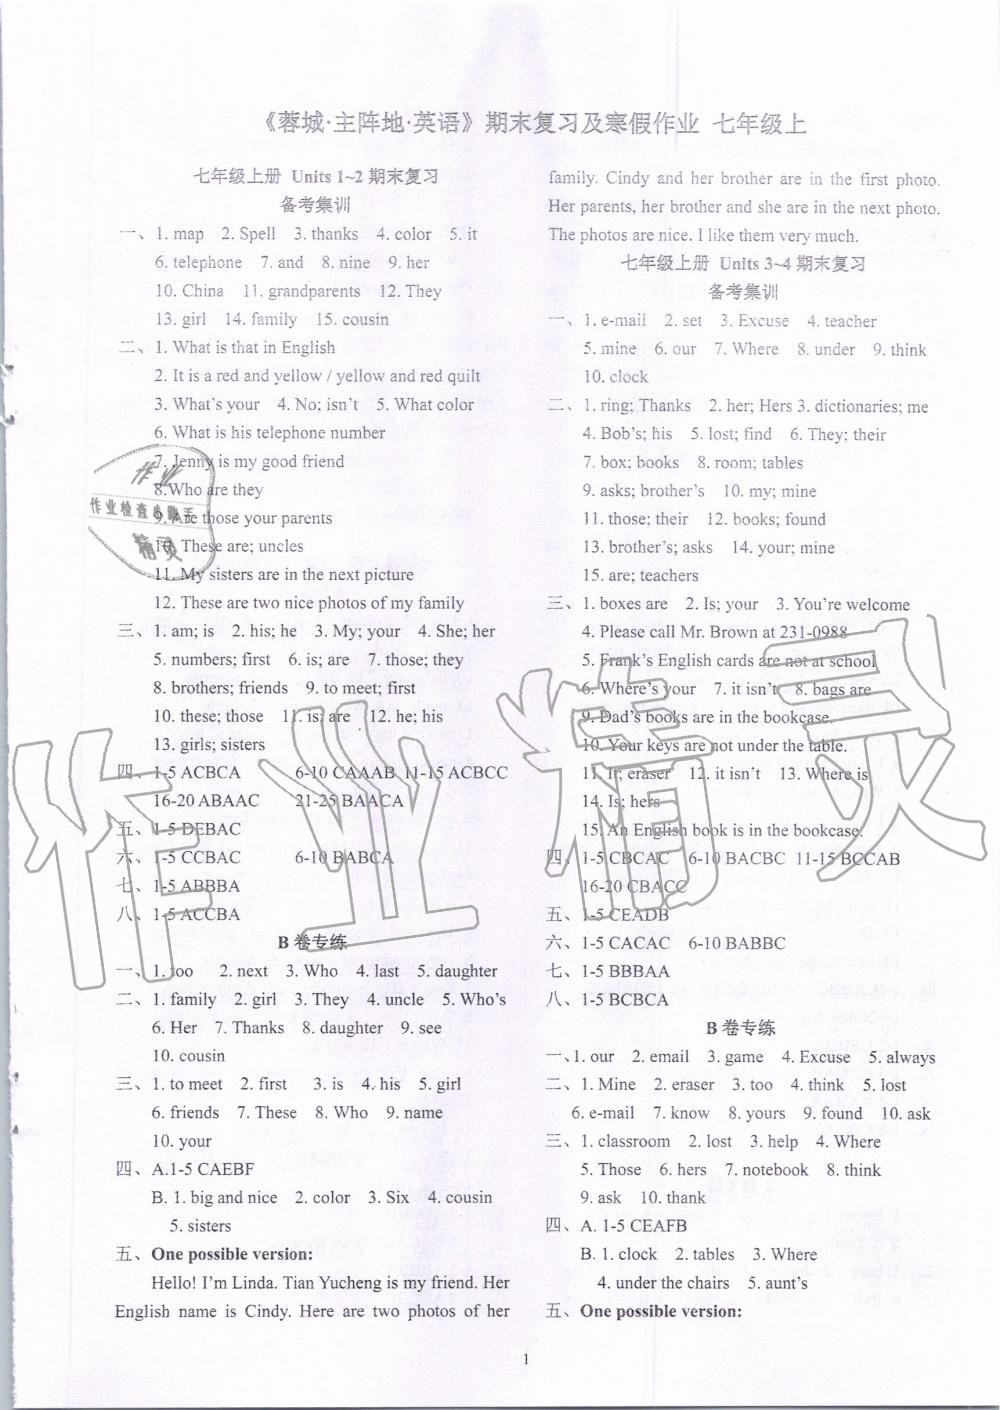 《蓉城·主阵地·英语》期末复习及寒假作业 七年级上
七年级上册 Units 1~2 期末复习
备考集训
一、1. map 2. Spell 3. thanks 4. color 5. it
6. telephone 7. and 8. nine 9. her
10. China 11. grandparents 12. They
13. girl 14. family 15. cousin
二、1. What is that in English
2. It is a red and yellow / yellow and red quilt
3. What's your 4. No; isn't 5. What color
6. What is his telephone number
7. Jenny is my good friend
8.Who are they
9. Are those your parents
10. These are; uncles
11. My sisters are in the next picture
12. These are two nice photos of my family
三、1. am; is 2. his; he 3. My; your 4. She; her
5. numbers; first 6. is; are 7. those; they
8. brothers; friends 9. to meet; first
10. these; those 11. is; are 12. he; his
13. girls; sisters
四、1-5 ACBCA 6-10 CAAAB 11-15 ACBCC
16-20 ABAAC 21-25 BAACA
五、1-5 DEBAC
六、1-5 CCBAC 6-10 BABCA
七、1-5 ABBBA
八、1-5 ACCBA
B 卷专练
一、1. too 2. next 3. Who 4. last 5. daughter
二、1. family 2. girl 3. They 4. uncle 5. Who's
6. Her 7. Thanks 8. daughter 9. see
10. cousin
三、1. to meet 2. first 3. is 4. his 5. girl
6. friends 7. These 8. Who 9. name
10. your
四、A.1-5 CAEBF
B. 1. big and nice 2. color 3. Six 4. cousin
5. sisters
五、One possible version:
Hello! I'm Linda. Tian Yucheng is my friend. Her
English name is Cindy. Here are two photos of her
family. Cindy and her brother are in the first photo.
Her parents, her brother and she are in the next photo.
The photos are nice. I like them very much.
七年级上册 Units 3~4 期末复习
备考集训
一、1. e-mail 2. set 3. Excuse 4. teacher
5. mine 6. our 7. Where 8. under 9. think
10. clock
二、1. ring; Thanks 2. her; Hers 3. dictionaries; me
4. Bob's; his 5. lost; find 6. They; their
7. box; books 8. room; tables
9. asks; brother's 10. my; mine
11. those; their 12. books; found
13. brother's; asks 14. your; mine
15. are; teachers
三、1. boxes are 2. Is; your 3. You're welcome
4. Please call Mr. Brown at 231-0988
5. Frank's English cards are not at school
6. Where's your 7. it isn't 8. bags are
9. Dad's books are in the bookcase.
10. Your keys are not under the table.
11. It; eraser 12. it isn't 13. Where is
14. Is; hers
15. An English book is in the bookcase.
四、1-5 CBCAC 6-10 BACBC 11-15 BCCAB
16-20 CBACC
五、1-5 CEADB
六、1-5 CACAC 6-10 BABBC
七、1-5 BBBAA
八、1-5 BCBCA
B 卷专练
一、1. our 2. email 3. game 4. Excuse 5. always
二、1. Mine 2. eraser 3. too 4. think 5. lost
6. e-mail 7. know 8. yours 9. found 10. ask
三、1. classroom 2. lost 3. help 4. Where
5. Those 6. hers 7. notebook 8. think
9. ask 10. thank
四、A. 1-5 CEAFB
B. 1. clock 2. tables 3. Where
4. under the chairs 5. aunt's
五、One possible version:
1
作业
作业检查小助手
精灵
作业精灵